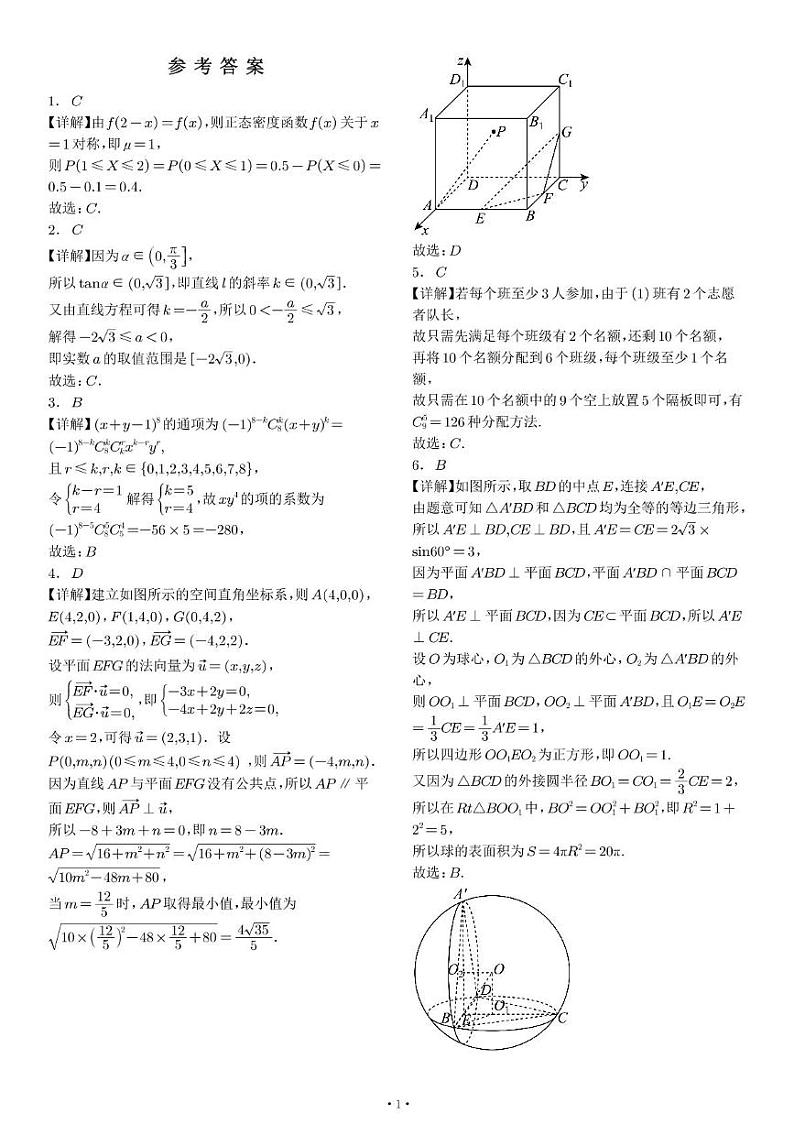 参考答案
1. C
【详解】由f(2-x)=f(x),则正态密度函数f(x)关于x
=1对称,即μ=1,
则P(1≤X≤2)=P(0≤X≤1)=0.5-P(X≤0)=
0.5-0.1=0.4.
故选:C.
2. C
【详解】因为α∈(0,π/3],
所以tanα∈(0,√3],即直线l的斜率k∈(0,√3].
又由直线方程可得k=-a/2,所以0<-a/2≤√3,
解得-2√3≤a<0,
即实数a的取值范围是[-2√3,0).
故选:C.
3. B
【详解】(x+y-1)⁸的通项为(-1)^{8-k}C_8^k(x+y)^k=
(-1)^{8-k}C_8^kC_k^rx^{k-r}y^r,
且r≤k,r,k∈{0,1,2,3,4,5,6,7,8},
令{k-r=1 r=4 解得{k=5 r=4,故xy⁴的项的系数为
(-1)^{8-5}C_8^5C_5^4=-56×5=-280,
故选:B
4. D
【详解】建立如图所示的空间直角坐标系,则A(4,0,0),
E(4,2,0),F(1,4,0),G(0,4,2),
→EF=(-3,2,0),→EG=(-4,2,2).
设平面EFG的法向量为→u=(x,y,z),
则{→EF·→u=0, →EG·→u=0,,即{-3x+2y=0, -4x+2y+2z=0,
令x=2,可得→u=(2,3,1). 设
P(0,m,n)(0≤m≤4,0≤n≤4),则→AP=(-4,m,n).
因为直线AP与平面EFG没有公共点,所以AP∥平
面EFG,则→AP⊥→u,
所以-8+3m+n=0,即n=8-3m.
AP=√(16+m²+n²)=√(16+m²+(8-3m)²)=
√(10m²-48m+80),
当m=12/5时,AP取得最小值,最小值为
√(10×(12/5)²-48×12/5+80)=4√35/5.
z
D₁
C₁
A₁
B₁
P
G
D
C
y
F
A
E
B
x
故选:D
5. C
【详解】若每个班至少3人参加,由于(1)班有2个志愿
者队长,
故只需先满足每个班级有2个名额,还剩10个名额,
再将10个名额分配到6个班级,每个班级至少1个名
额,
故只需在10个名额中的9个空上放置5个隔板即可,有
C_9^5=126种分配方法.
故选:C.
6. B
【详解】如图所示,取BD的中点E,连接A′E,CE,
由题意可知△A′BD和△BCD均为全等的等边三角形,
所以A′E⊥BD,CE⊥BD,且A′E=CE=2√3×
sin60°=3,
因为平面A′BD⊥平面BCD,平面A′BD∩平面BCD
=BD,
所以A′E⊥平面BCD,因为CE⊂平面BCD,所以A′E
⊥CE.
设O为球心,O₁为△BCD的外心,O₂为△A′BD的外
心,
则OO₁⊥平面BCD,OO₂⊥平面A′BD,且O₁E=O₂E
=1/3CE=1/3A′E=1,
所以四边形OO₁EO₂为正方形,即OO₁=1.
又因为△BCD的外接圆半径BO₁=CO₁=2/3CE=2,
所以在Rt△BOO₁中,BO²=OO₁²+BO₁²,即R²=1+
2²=5,
所以球的表面积为S=4πR²=20π.
故选:B.
A′
O₂
O
D
O₁
B
E
C
·1·